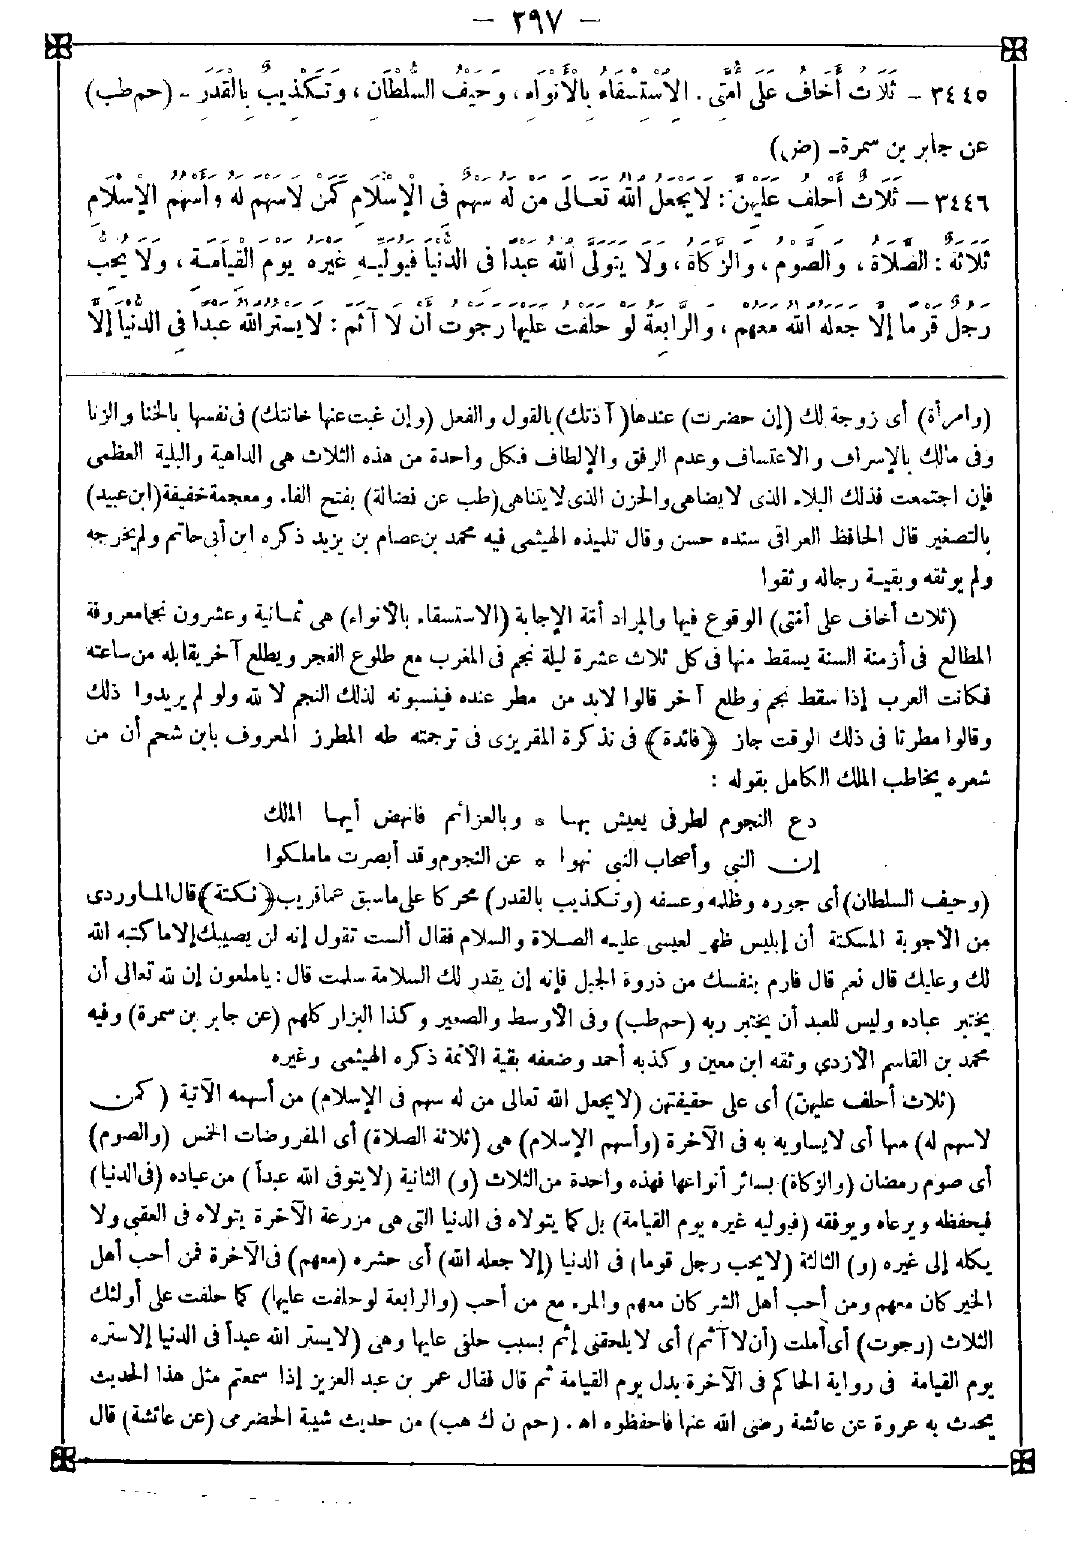 - ٢٩٧ -
٣٤٤٥ - ثَلَاثٌ أَخَافُ عَلَى أُمَّتِى . الِاسْتِسْقَاءُ بِالْأَنْوَاءِ ، وَحَيْفُ السُّلْطَانِ ، وَتَكْذِيبٌ بِالْقَدَرِ - (حم طب)
عن جابر بن سمرة - (ض)
٣٤٤٦ - ثَلَاثٌ أَحْلِفُ عَلَيْهِنَّ : لَا يَجْعَلُ اللهُ تَعَالَى مَنْ لَهُ سَهْمٌ فِى الْإِسْلَامِ كَمَنْ لَا سَهْمَ لَهُ وَأَسْهُمُ الْإِسْلَامِ
ثَلَاثَةٌ : الصَّلَاةُ ، وَالصَّوْمُ ، وَالزَّكَاةُ ، وَلَا يَتَوَلَّى اللهُ عَبْدًا فِى الدُّنْيَا فَيُوَلِّيهِ غَيْرَهُ يَوْمَ الْقِيَامَةِ ، وَلَا يُحِبُّ
رَجُلٌ قَوْمًا إِلَّا جَعَلَهُ اللهُ مَعَهُمْ ، وَالرَّابِعَةُ لَوْ حَلَفْتُ عَلَيْهَا رَجَوْتُ أَنْ لَا آثَمَ : لَا يَسْتُرُ اللهُ عَبْدًا فِى الدُّنْيَا إِلَّا
(وامرأة) أى زوجة لك (إن حضرت) عندها (آذتك) بالقول والفعل (وإن غبت عنها خانتك) فى نفسها بالخنا والزنا
وفى مالك بالإسراف والاعتساف وعدم الرفق والإلطاف فكل واحدة من هذه الثلاث هى الداهية والبلية العظمى
فإن اجتمعت فذلك البلاء الذى لا يضاهى والحزن الذى لا يتناهى (طب عن فضالة) بفتح الفاء ومعجمة خفيفة (ابن عبيد)
بالتصغير قال الحافظ العراقى سنده حسن وقال تلميذه الهيثمى فيه محمد بن عصام بن يزيد ذكره ابن أبى حاتم ولم يخرجه
ولم يوثقه وبقية رجاله وثقوا
(ثلاث أخاف على أمتى) الوقوع فيها والمراد أمة الإجابة (الاستسقاء بالأنواء) هى ثمانية وعشرون نجما معروفة
المطالع فى أزمنة السنة يسقط منها فى كل ثلاث عشرة ليلة نجم فى المغرب مع طلوع الفجر ويطلع آخر يقابله من ساعته
فكانت العرب إذا سقط نجم وطلع آخر قالوا لابد من مطر عنده فينسبونه لذلك النجم لا لله ولو لم يريدوا ذلك
وقالوا مطرنا فى ذلك الوقت جاز ﴿فائدة﴾ فى تذكرة المقريزى فى ترجمته طه المطرز المعروف بابن شحم أن من
شعره يخاطب الملك الكامل بقوله :
دع النجوم لطرفى يعيش بها * وبالعزائم فانهض أيها الملك
إن النبى وأصحاب النبى نهوا * عن النجوم وقد أبصرت ما ملكوا
(وحيف السلطان) أى جوره وظلمه وعسفه (وتكذيب بالقدر) محركا على ما سبق عما قريب ﴿نكتة﴾ قال الماوردى
من الأجوبة المسكتة أن إبليس ظهر لعيسى عليه الصلاة والسلام فقال ألست تقول إنه لن يصيبك إلا ما كتبه الله
لك وعليك قال نعم قال فارم بنفسك من ذروة الجبل فإنه إن يقدر لك السلامة سلمت قال : يا ملعون إن لله تعالى أن
يختبر عباده وليس للعبد أن يختبر ربه (حم طب) وفى الأوسط والصغير وكذا البزار كلهم (عن جابر بن سمرة) وفيه
محمد بن القاسم الأزدي وثقه ابن معين وكذبه أحمد وضعفه بقية الأئمة ذكره الهيثمى وغيره
(ثلاث أحلف عليهن) أى على حقيقتهن (لا يجعل الله تعالى من له سهم فى الإسلام) من أسهمه الآتية (كمن
لا سهم له) منها أى لا يساويه به فى الآخرة (وأسهم الإسلام) هى (ثلاثة الصلاة) أى المفروضات الخمس (والصوم)
أى صوم رمضان (والزكاة) بسائر أنواعها فهذه واحدة من الثلاث (و) الثانية (لا يتوفى الله عبداً) من عباده (فى الدنيا)
فيحفظه ويرعاه ويوفقه (فيوليه غيره يوم القيامة) بل كما يتولاه فى الدنيا التى هى مزرعة الآخرة يتولاه فى العقبى ولا
يكله إلى غيره (و) الثالثة (لا يحب رجل قوما) فى الدنيا (إلا جعله الله) أى حشره (معهم) فى الآخرة فمن أحب أهل
الخير كان معهم ومن أحب أهل الشر كان معهم والمرء مع من أحب (والرابعة لو حلفت عليها) كما حلفت على أولئك
الثلاث (رجوت) أى أملت (أن لا آثم) أى لا يلحقنى إثم بسبب حلفى عليها وهى (لا يستر الله عبداً فى الدنيا إلا ستره
يوم القيامة فى رواية الحاكم فى الآخرة بدل يوم القيامة ثم قال فقال عمر بن عبد العزيز إذا سمعتم مثل هذا الحديث
يحدث به عروة عن عائشة رضى الله عنها فاحفظوه اه . (حم ن ك هب) من حديث شيبة الحضرمى (عن عائشة) قال